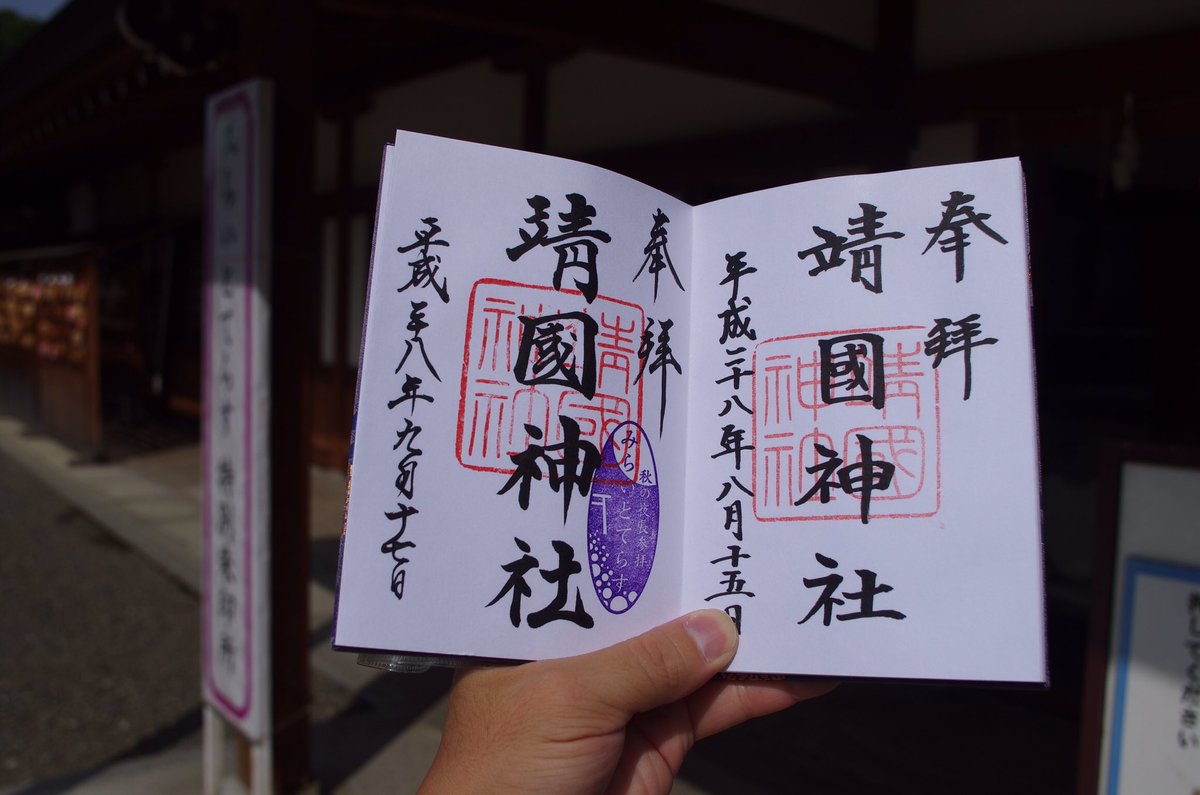 奉拝
靖國神社
靖國神社
平成二十八年八月十五日
奉拝
靖國神社
靖國神社
秋の夜間参拝
みらいとてらす
平成二十八年九月十七日
みらいとてらす 特別朱印所